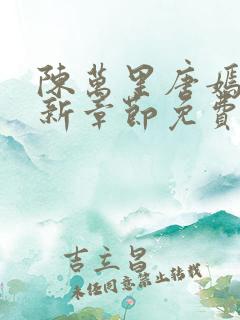 陳萬里唐嫣
新章節免費
吉立昌
未經同意禁止轉載